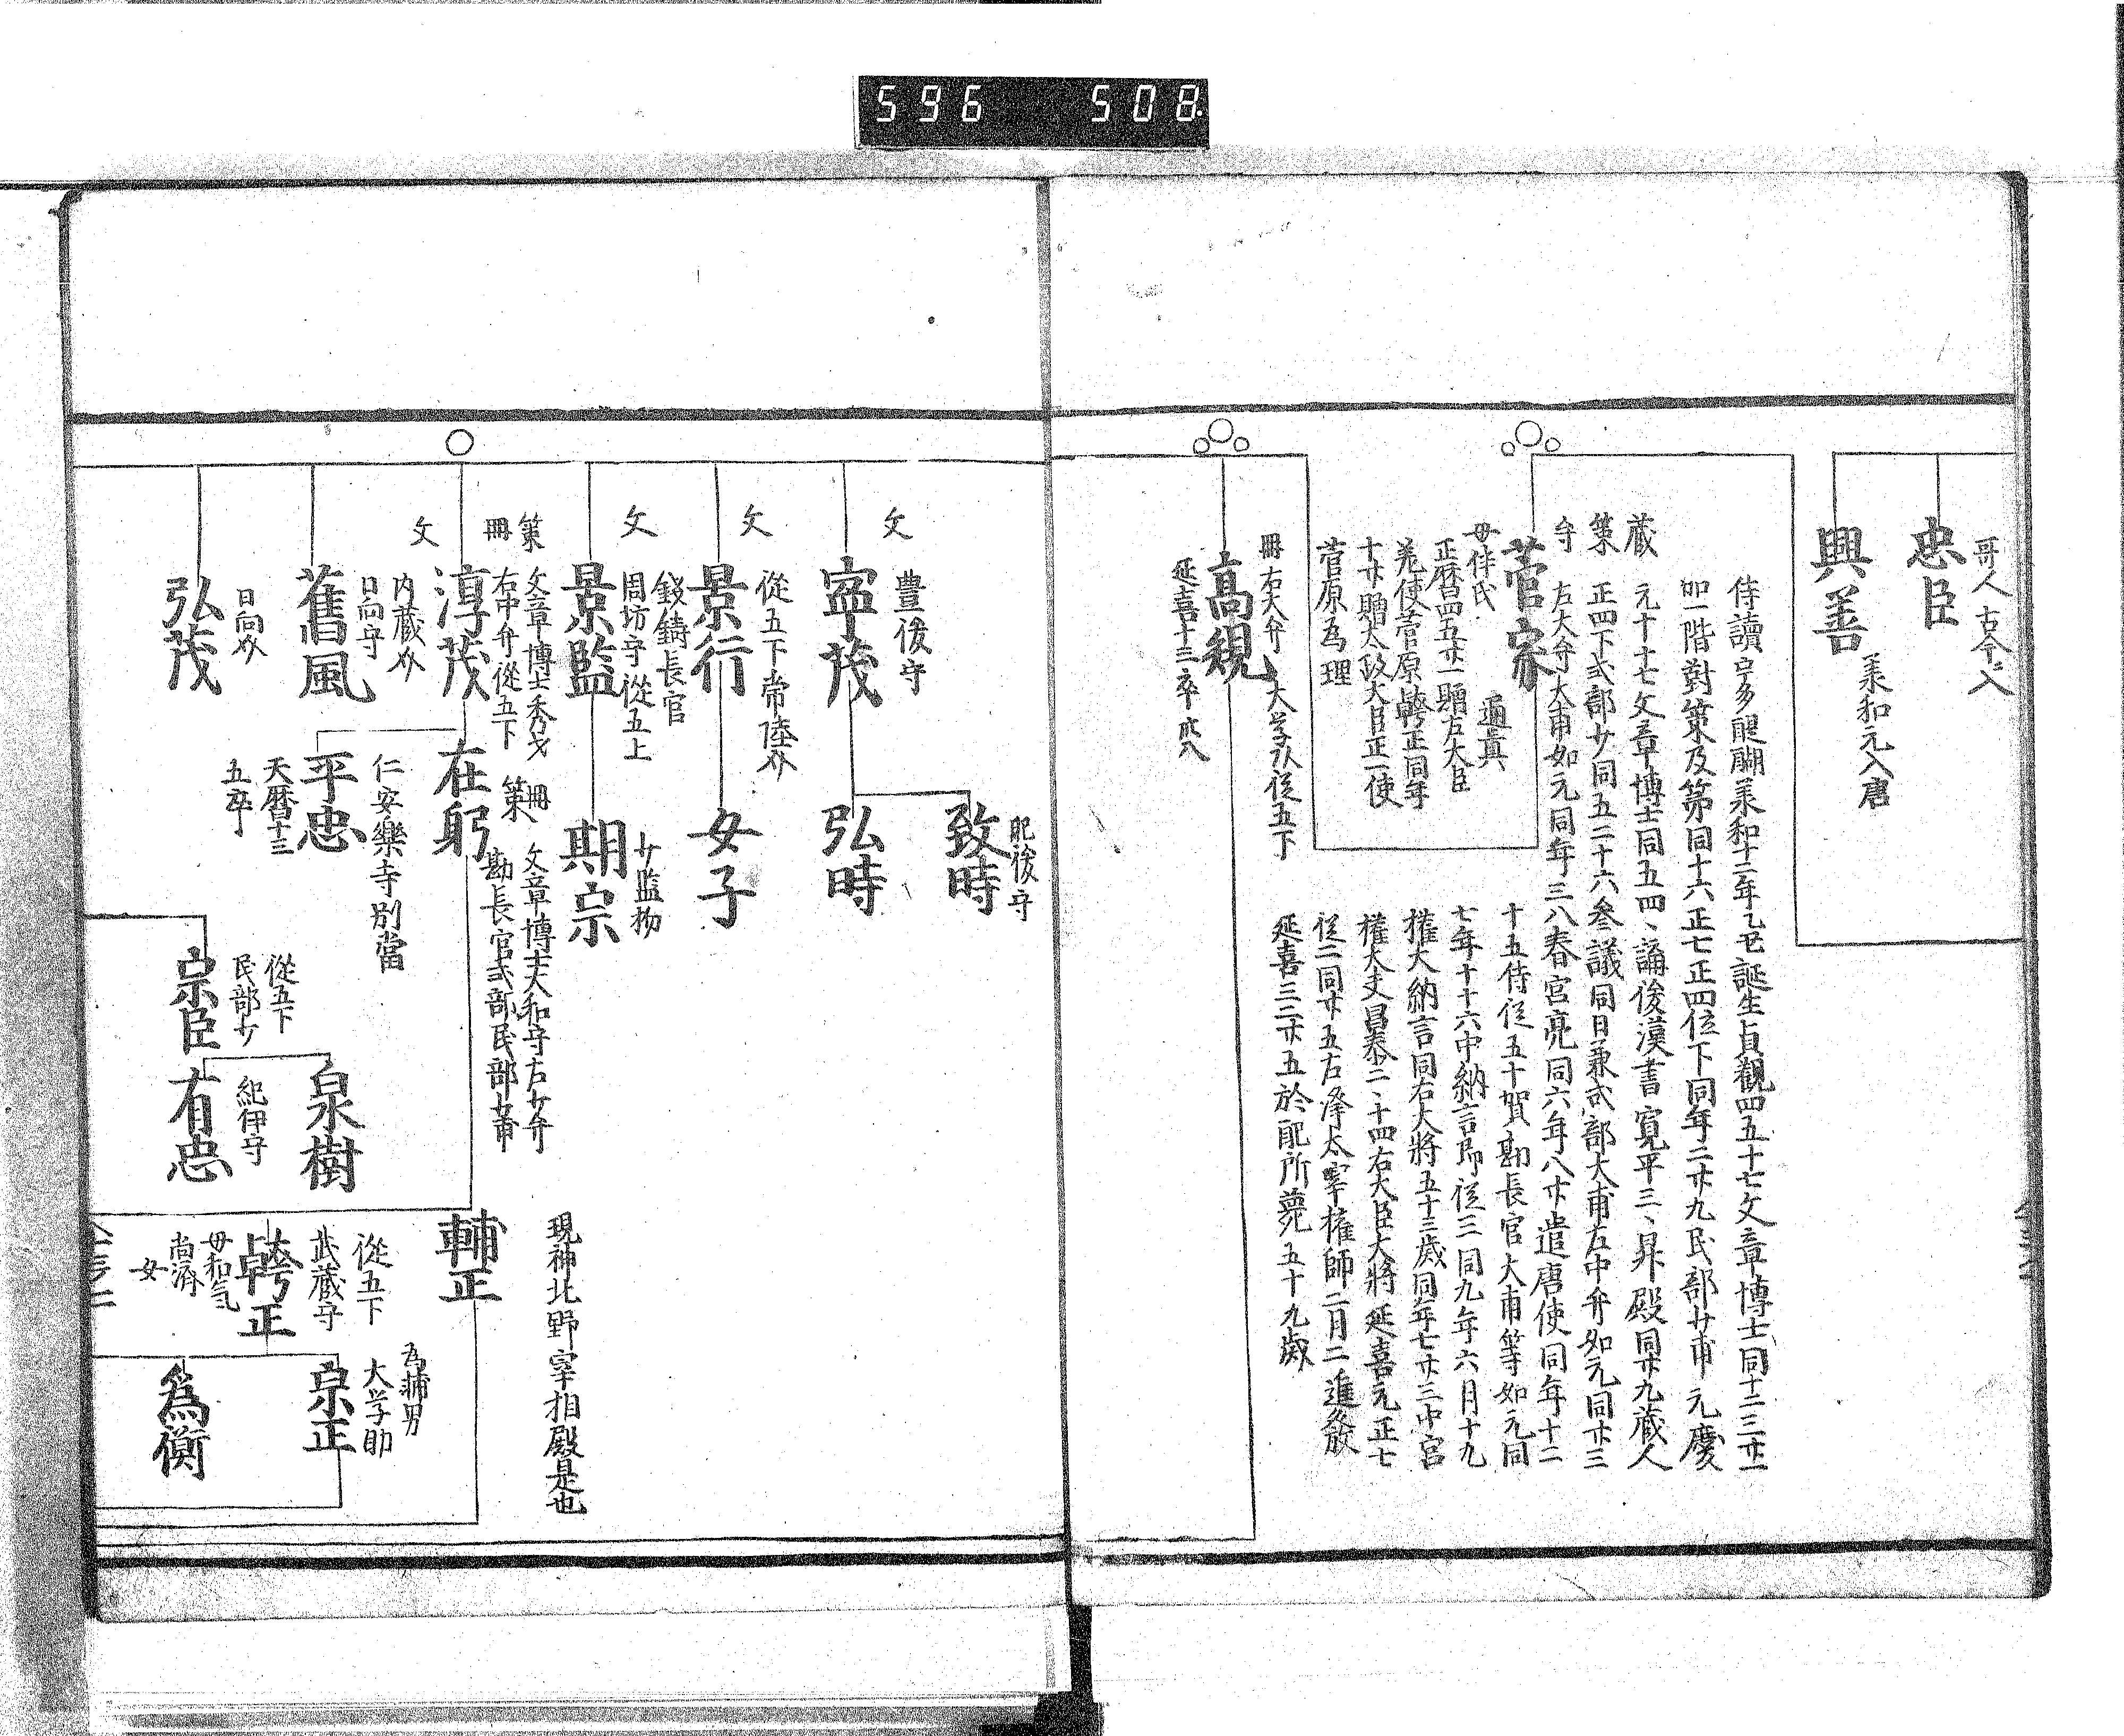 596 508
哥人 古今ニ入
忠臣
興善
義和元入唐
侍讀宇多醍醐美和十二年乙丑誕生貞觀四五十七文章博士同十二三廾一
如一階對策及第同十六正七正四位下同年二廾九民部少甫 元慶
藏
元十十七文章博士同五四、誦後漢書寬平三、昇殿同廾九藏人
策
正四下式部少同五二十六參議同日兼式部大甫左中弁如元同廾三
左大弁大甫如元同年三八春宮亮同六年八廾遣唐使同年十二
十五侍從五十賀勘長官大甫等如元同
七年十十六中納言即從三同九年六月十九
權大納言同右大將五十三歲同年七廾三中宮
權大夫昌泰二、十四右大臣大將延喜元正七
從二同廾五左降太宰權師二月二進發
延喜三二廾五於配所薨五十九歲
菅家
道真
母伴氏
正曆四五廾一贈左大臣
勅使菅原幹正同年
十廾贈太政大臣正一使
菅原為理
冊 右大弁
大学頭從五下
高視
延喜十三卒卅八
肥後守
致時
文 豊後守
寧茂
弘時
文 從五下常陸介
景行
女子
文 錢鑄長官
周坊守從五上
景監
少監物
期宗
策冊
文章博士秀才
右中弁從五下
淳茂
冊策
文章博士大和守右少弁
勘長官式部民部少甫
在躬
現神北野宰相殿是也
輔正
文 内藏介
日向守
舊風
仁安樂寺別當
平忠
天曆十三
五卒
日向介
弘茂
從五下
民部少
宗臣
泉樹
紀伊守
有忠
從五下
武蔵守
母和氣
尚濟
女
為輔男
大学助
宗正
爲衡